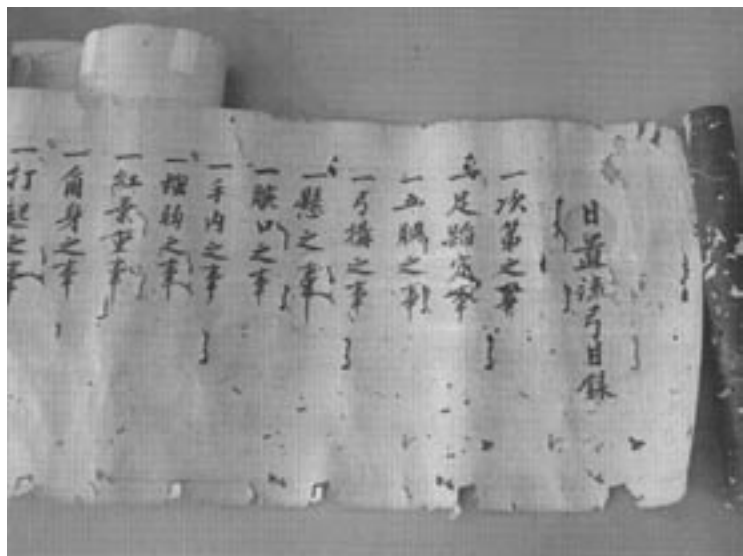 日置流弓目録
一次第之事
一足踏定事
一五胴之事
一弓搆之事
一懸之事
一膝口之事
一手内之事
之事
一紅葉重事
一角身之事
一打起之事